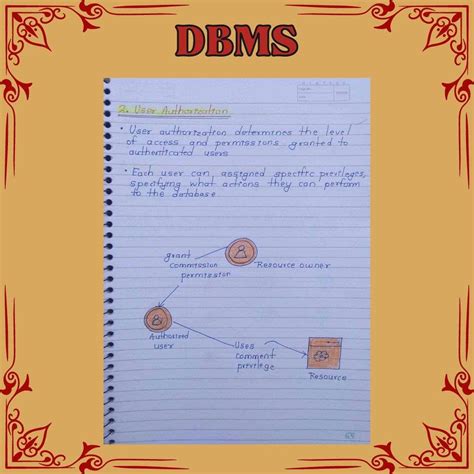 DBMS
2. User Authorization
• User authorization determines the level
of access and permissions granted to
authenticated users
• Each user can assigned specific privileges,
specifying what actions they can perform
to the database
grant
commission
permission
Resource owner
Authorized
user
Uses
comment
privilege
Resource